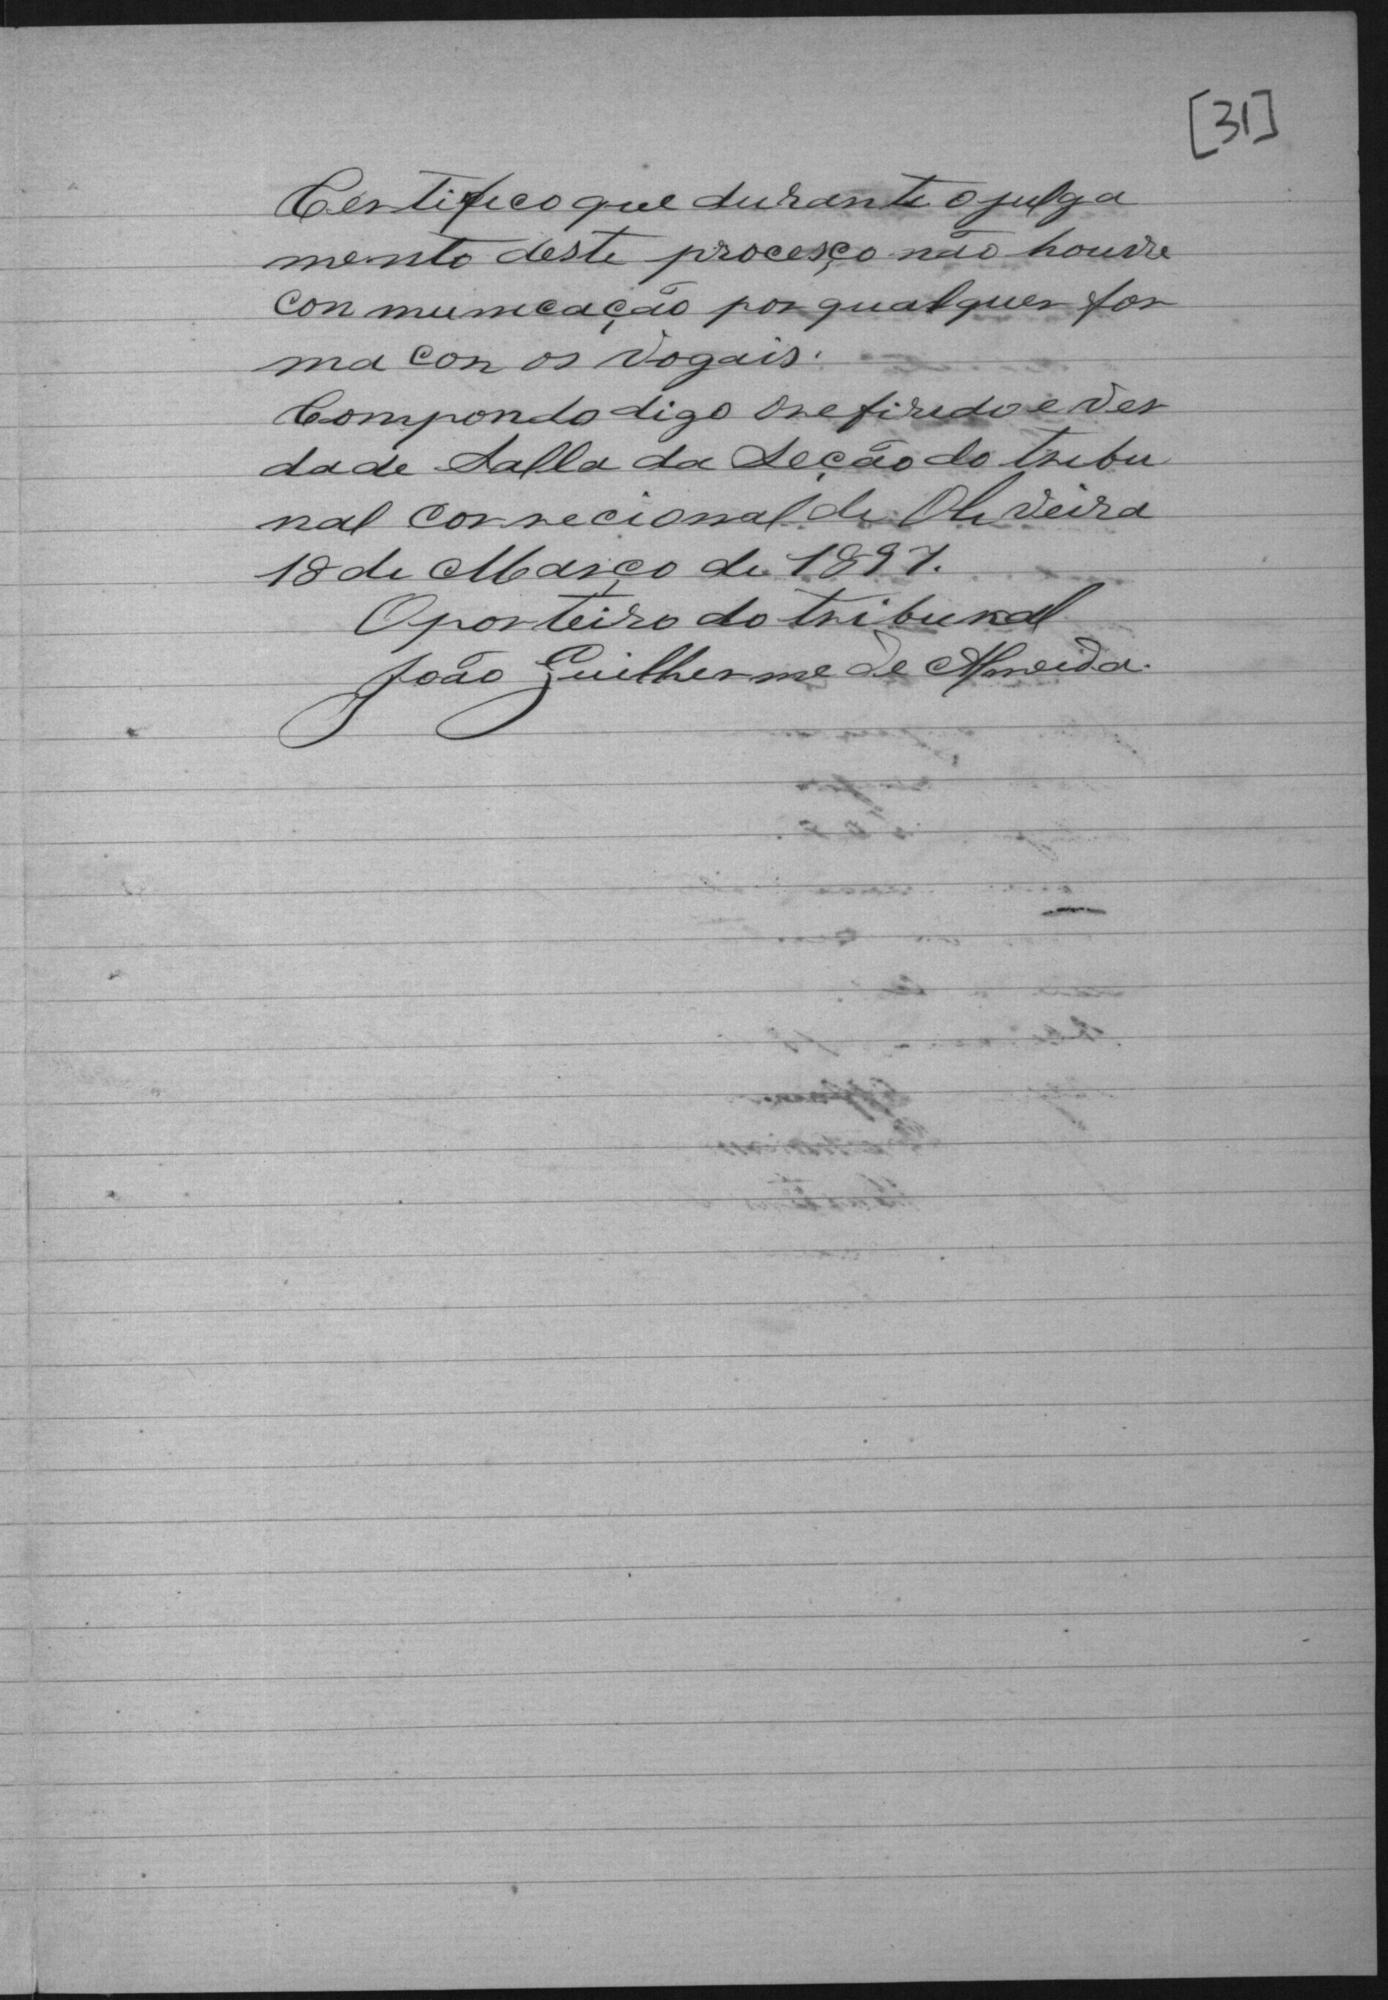 [31]
Certifico que durante o julga
mento deste procesço não houve
con municação por qualquer for
ma con os vogais.
Compondo digo o refirido e ver
dade Salla da Seção do tribu
nal correcional de Oliveira
18 de Março de 1897.
O porteiro do tribunal
João Guilherme de Almeida.